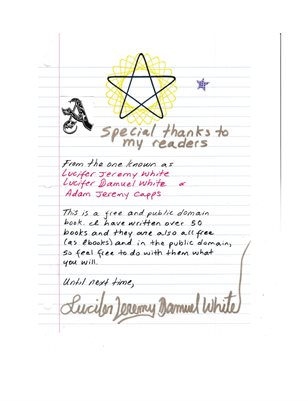 A
Special thanks to
my readers
From the one known as
Lucifer Jeremy White
Lucifer Damuel White or
Adam Jeremy Capps
This is a free and public domain
book. I have written over 50
books and they are also all free
(as Ebooks) and in the public domain,
so feel free to do with them what
you will.
Until next time,
Lucifer Jeremy Damuel White